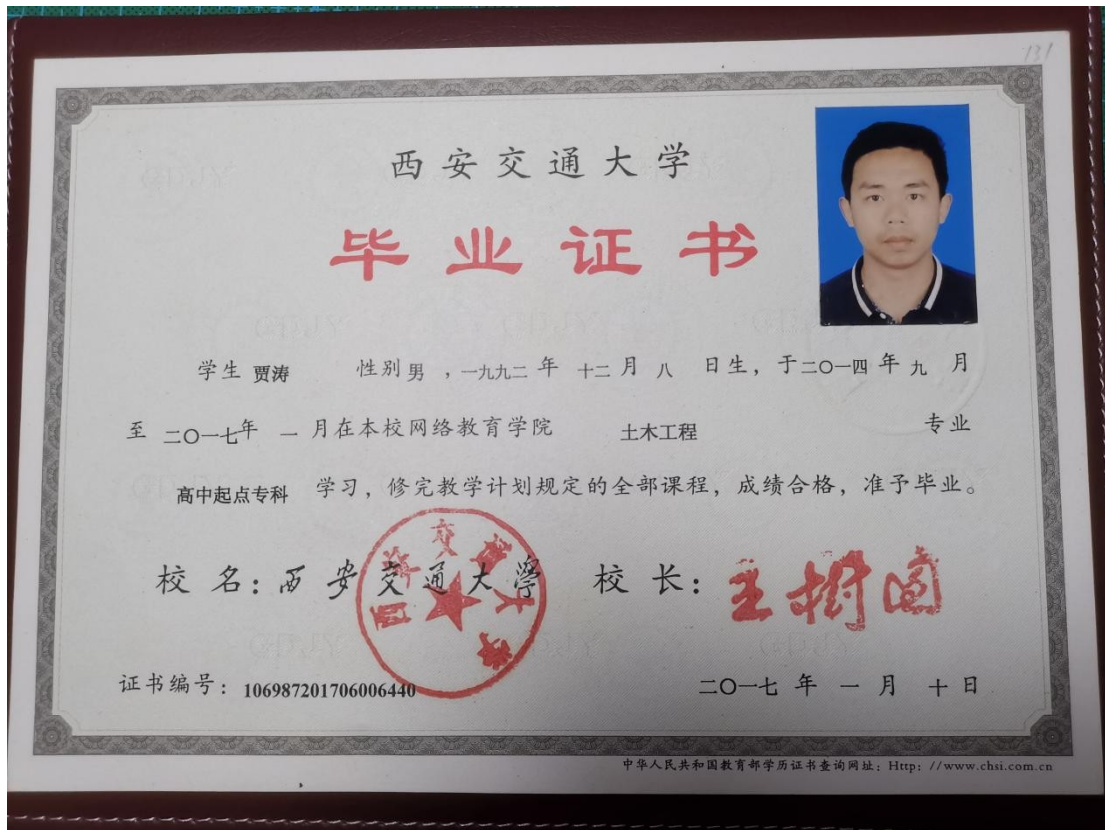 131
西安交通大学
毕业证书
学生 贾涛 性别 男 ，一九九二 年 十二 月 八 日生，于二〇一四 年 九 月
至 二〇一七年 一 月在本校网络教育学院 土木工程 专业
高中起点专科 学习，修完教学计划规定的全部课程，成绩合格，准予毕业。
校名：西安交通大學 校长：王樹國
西安交通大學
证书编号：106987201706006440 二〇一七 年 一 月 十 日
中华人民共和国教育部学历证书查询网址：Http：//www.chsi.com.cn